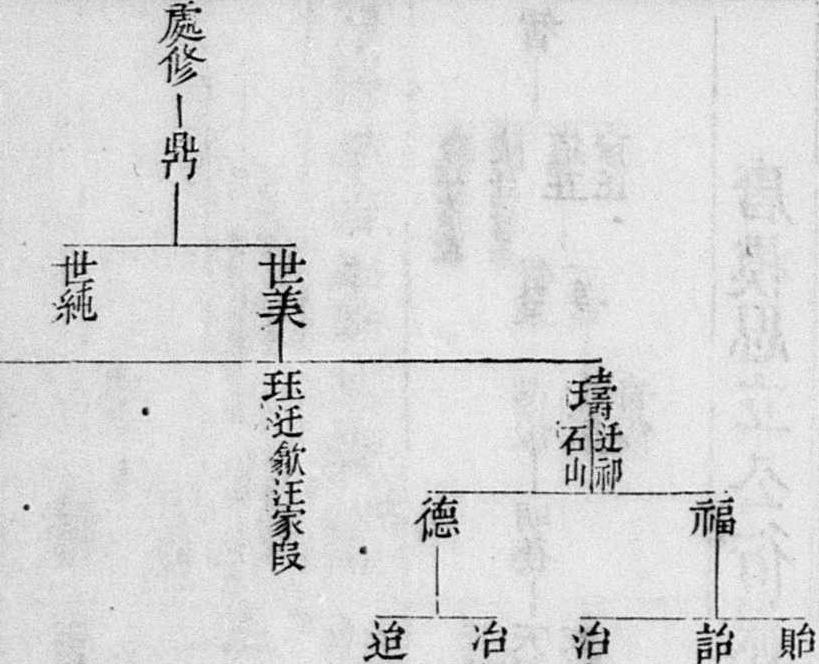 處修
鼎
世美
世純
璹迁祁石山
珤迁歙汪家段
福
德
貽
詒
治
冶
迨